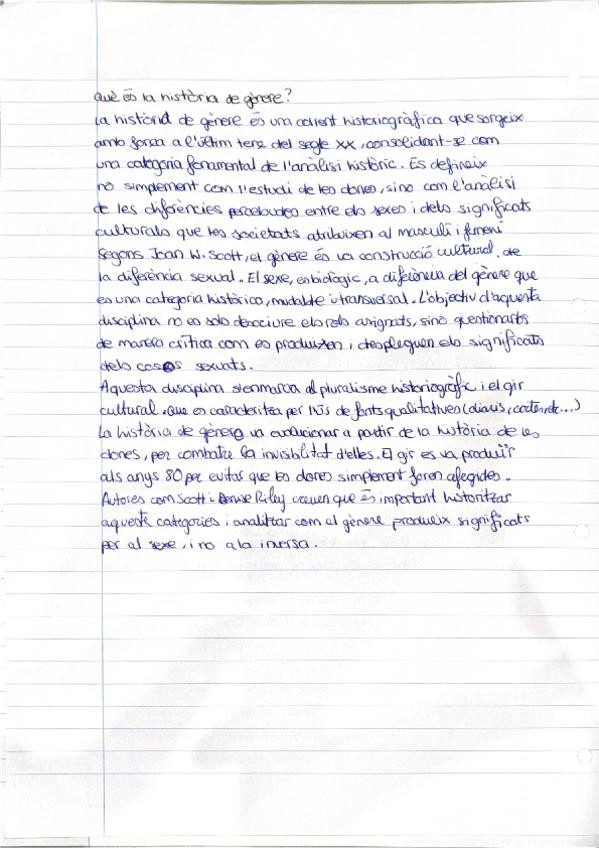 Què és la història de gènere?
La història de gènere és una corrent historiogràfica que sorgeix
amb força a l'últim terç del segle XX, consolidant-se com
una categoria fonamental de l'anàlisi històric. Es defineix
no simplement com l'estudi de les dones, sino com l'anàlisi
de les diferències percebudes entre els sexes i dels significats
culturals que les societats atribuixen al masculí i femení
Segons Joan W. Scott, el gènere és la construcció cultural de
la diferència sexual. El sexe, es biològic, a diferència del gènere que
es una categoria històrica, mudable i transversal. L'objectiu d'aquesta
disciplina no es solo descriure els rols asignats, sino questionarts
de manera crítica com es produixen i despleguen els significats
dels cosos sexuats.
Aquesta disciplina s'enmarca al pluralisme historiogràfic i el gir
cultural. que es caracteritza per l'ús de fonts qualitatives (diaris, cartes, etc...)
La història de gènere va evolucionar a partir de la història de les
dones, per combatre la invisibilitat d'elles. El gir es va produïr
als anys 80 per evitar que les dones simplement foren afegides.
Autores com Scott i Denise Riley creuen que és important historitzar
aqueste categories i analitzar com el gènere produeix significats
per al sexe, i no a la inversa.